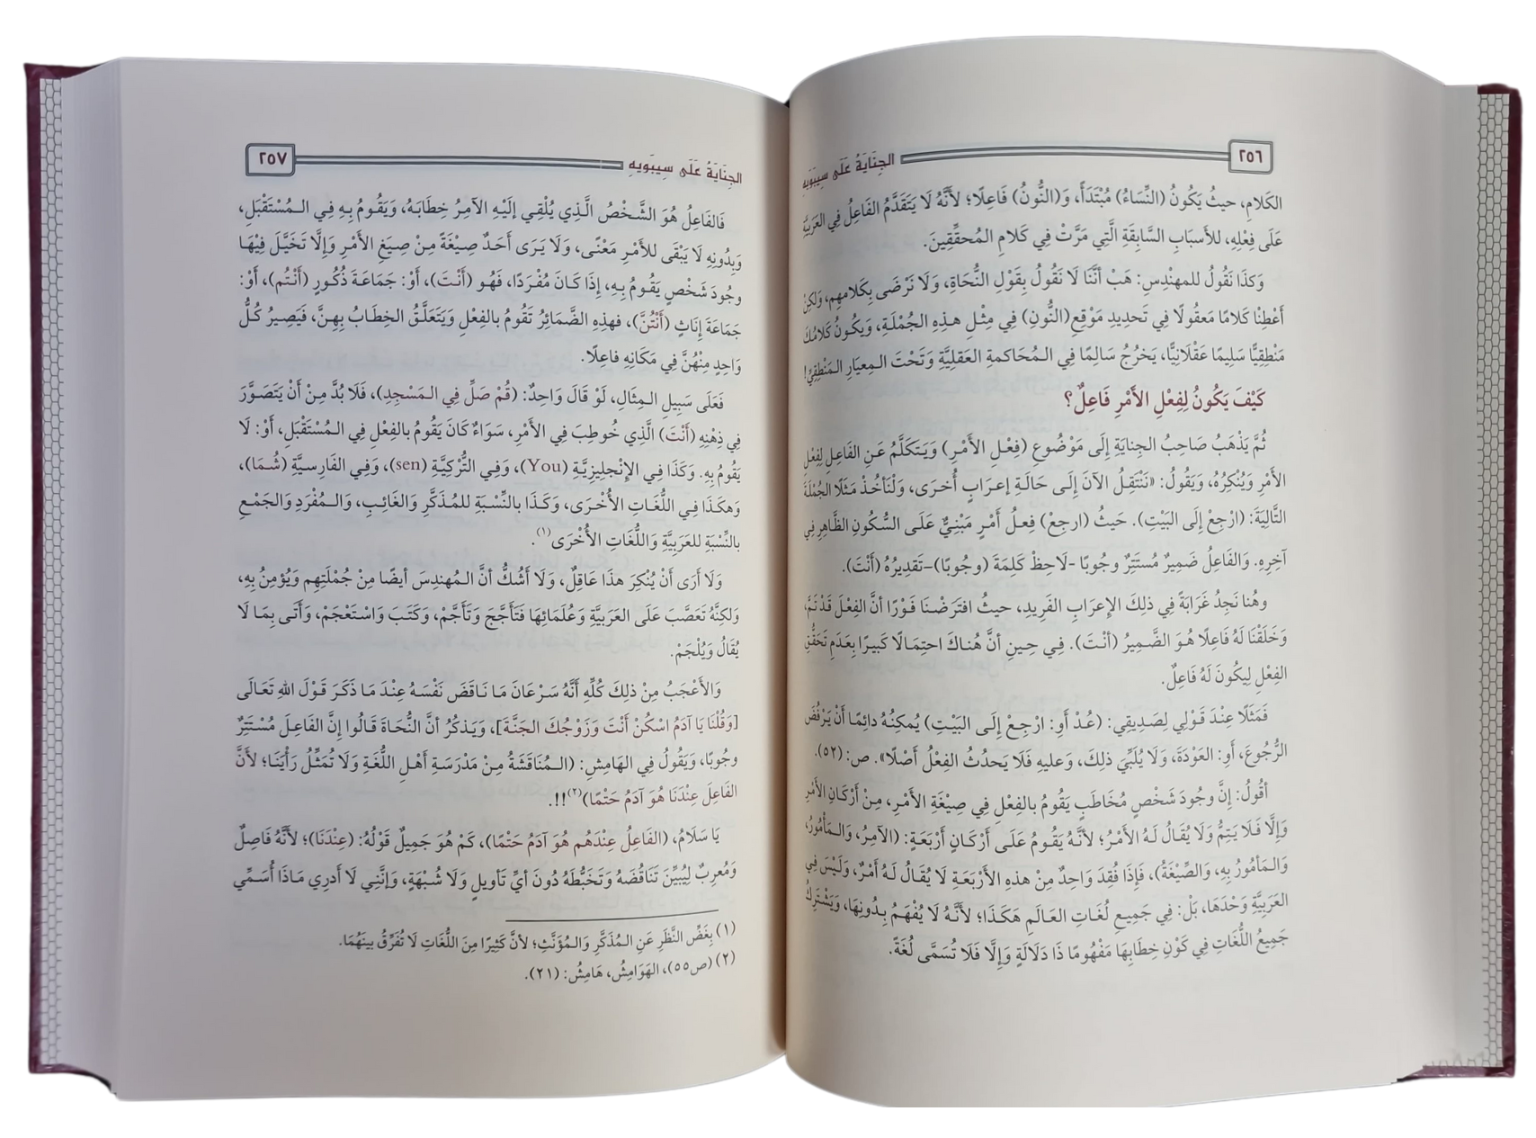 ٢٥٦
الجِنَايَةُ عَلَى سِيبَوَيهِ
الكَلامِ، حيثُ يَكُونُ (النِّسَاءُ) مُبْتَدَأً، وَ(النُّونُ) فَاعِلًا؛ لأَنَّهُ لَا يَتَقَدَّمُ الفَاعِلُ فِي العَرَبِيَّةِ
عَلَى فِعْلِهِ، للأسبَابِ السَّابِقَةِ الَّتِي مَرَّتْ فِي كَلامِ المُحقِّقِينَ.
وَكَذَا نَقُولُ للمهنْدِسِ: هَبْ أنَّنَا لَا نَقُولُ بِقَوْلِ النُّحَاةِ، وَلَا نَرْضَى بِكَلامهِم، وَلكِنْ
أَعْطِنْا كَلامًا مَعقُولًا فِي تَحدِيدِ مَوْقِعِ (النُّونِ) فِي مِثْلِ هـذِهِ الجُمْلَةِ، وَيَكُونُ كَلامُكَ
مَنْطِقِيًّا سَلِيمًا عَقْلَانِيًّا، يَخرُجُ سَالِمًا فِي الـمُحَاكمةِ العَقليَّةِ وَتَحْتَ الـمِعيَارِ الـمَنْطقِيِّ!
كَيْفَ يَكُونُ لِفِعْلِ الأَمْرِ فَاعِلٌ؟
ثُمَّ يَذْهَبُ صَاحِبُ الجِنايَةِ إِلَى مَوْضُوعِ (فِعْلِ الأَمْرِ) وَيَتكلَّمُ عَنِ الفَاعِلِ لِفِعْلِ
الأَمْرِ وَيُنْكِرُهُ، وَيَقُولُ: «نَنْتَقِلُ الآنَ إِلَى حَالَةِ إعرَابٍ أُخرَى، وَلْنَأخُذْ مَثَلًا الجُمْلَةَ
التَّالِيَةَ: (ارجِعْ إِلَى البَيْتِ). حَيثُ (ارجِعْ) فِعلُ أَمْرٍ مَبْنِيٌّ عَلَى السُّكُونِ الظَّاهِرِ فِي
آخِرِهِ. وَالفَاعِلُ ضَمِيرٌ مُستَتِرٌ وجُوبًا -لَاحِظْ كَلِمَةَ (وجُوبًا)-تَقدِيرُهُ (أَنْتَ).
وهُنا نَجِدُ غَرَابَةً فِي ذلِكَ الإعرَابِ الفَرِيدِ، حيثُ افتَرَضْنَا فَوْرًا أنَّ الفِعْلَ قَدْ تَمَّ،
وَخَلَقْنَا لَهُ فَاعِلًا هُوَ الضَّمِيرُ (أنْتَ). فِي حِينِ أنَّ هُنَاكَ احتِمَالًا كَبِيرًا بِعَدَمِ تَحَقُّقِ
الفِعْلِ لِيكُونَ لَهُ فَاعِلٌ.
فَمَثَلًا عِنْدَ قَوْلِي لِصَدِيقِي: (عُدْ أَو: ارْجِعْ إِلَى البَيْتِ) يُمكِنُهُ دائِمًا أَنْ يَرْفُضَ
الرُّجُوعَ، أَوِ: العَوْدَةَ، وَلَا يُلَبِّيَ ذلِكَ، وَعليهِ فَلَا يَحدُثُ الفِعْلُ أَصْلًا». ص: (٥٢).
أَقُولُ: إِنَّ وجُودَ شَخْصٍ مُخَاطَبٍ يَقُومُ بالفِعْلِ فِي صِيْغَةِ الأَمْرِ، مِنْ أَرْكَانِ الأَمْرِ
وَإِلَّا فَلَا يَتِمُّ وَلَا يُقَالُ لَـهُ الأَمْـرُ؛ لأَنَّـهُ يَقُومُ عَلَـى أَرْكَـانٍ أَرْبَعَـةٍ: (الآمِـرُ، وَالـمَأْمُورُ،
وَالـمَأمُورُ بِهِ، وَالصِّيْغَةُ)، فَإِذَا فُقِدَ وَاحِدٌ مِنْ هذهِ الأَرْبَعَةِ لَا يُقَالُ لَهُ أَمْرٌ، وَلَيْسَ فِي
العَرَبِيَّةِ وَحْدَهَا، بَلْ: فِي جَمِيعِ لُغَاتِ العَالَمِ هَكَذَا؛ لأَنَّهُ لَا يُفْهَمُ بِدُونِهَا، وَيَشْتَرِكُ
جَمِيعُ اللُّغَاتِ فِي كَوْنِ خِطَابِهَا مَفْهُومًا ذَا دَلَالَةٍ وَإِلَّا فَلَا تُسَمَّى لُغَةً.
الجِنَايَةُ عَلَى سِيبَوَيهِ
٢٥٧
فَالفَاعِلُ هُوَ الشَّخْصُ الَّـذِي يُلْقِي إلَيْهِ الآمِرُ خِطَابَهُ، وَيَقُومُ بِهِ فِي الـمُسْتَقْبَلِ،
وَبِدُونِهِ لَا يَبْقَى للأَمْرِ مَعْنًى، وَلَا يَرَى أَحَدٌ صِيْغَةً مِنْ صِيَغِ الأَمْرِ وَإِلَّا تَخَيَّلَ فِيْهَا
وجُودَ شَخْصٍ يَقُومُ بِهِ، إِذَا كَانَ مُفْرَدًا، فَهُو (أَنْتَ)، أَوْ: جَمَاعَةَ ذُكُورٍ (أَنْتُم)، أَوْ:
جَمَاعَةَ إِنَاثٍ (أَنْتُنَّ)، فهذِهِ الضَّمَائِرُ تَقُومُ بالفِعْلِ وَيَتَعَلَّقُ الخِطَابُ بِهِنَّ، فَيَصِيرُ كُلُّ
وَاحِدٍ مِنْهُنَّ فِي مَكَانِهِ فاعِلًا.
فَعَلَى سَبِيلِ المِثَالِ، لَوْ قَالَ وَاحِدٌ: (قُمْ صَلِّ فِي الـمَسْجِدِ)، فَلَا بُدَّ مِنْ أَنْ يَتَصَوَّرَ
فِي ذِهْنِهِ (أَنْتَ) الَّذِي خُوطِبَ فِي الأَمْرِ، سَوَاءٌ كَانَ يَقُومُ بالفِعْلِ فِي الـمُسْتَقْبَلِ، أَوْ: لَا
يَقُومُ بِهِ. وَكَذَا فِي الإِنْجلِيزِيَّةِ (You)، وَفِي التُّرْكِيَّةِ (sen)، وَفِي الفَارِسيَّةِ (شُمَا)،
وَهكَذَا فِي اللُّغَاتِ الأُخْرَى، وَكَذَا بالنِّسْبَةِ للمُذَكَّرِ وَالغَائِبِ، وَالـمُفْرَدِ وَالجَمْعِ
بالنِّسْبَةِ للعَرَبِيَّةِ وَاللُّغَاتِ الأُخْرَى(١).
وَلَا أَرَى أَنْ يُنْكِرَ هذَا عَاقِلٌ، وَلَا أَشُكُّ أنَّ الـمُهندِسَ أيضًا مِنْ جُمْلَتِهِم وَيُؤمِنُ بِهِ،
وَلكِنَّهُ تَعَصَّبَ عَلَى العَرَبِيَّةِ وَعُلَمَائِهَا فَتَأَجَّجَ وَتَأَجَّمَ، وَكَتَبَ وَاستَعْجَمَ، وَأَتَى بِمَا لَا
يُقَالُ وَيُلْجَمْ.
وَالأَعْجَبُ مِنْ ذلِكَ كُلِّهِ أَنَّهُ سَرْعَانَ مَا نَاقَضَ نَفْسَهُ عِنْدَ مَا ذَكَرَ قَوْلَ اللهِ تَعَالَى
[وَقُلْنَا يَا آدَمُ اسْكُنْ أَنْتَ وَزَوْجُكَ الجَنَّةَ]، وَيَذكُرُ أنَّ النُّحَاةَ قَالُوا إنَّ الفَاعِلَ مُسْتَتِرٌ
وجُوبًا، وَيَقُولُ فِي الهَامِشِ: (الـمُنَاقَشَةُ مِنْ مَدْرَسَةِ أَهْلِ اللُّغَةِ وَلَا تُمَثِّلُ رَأْيَنَا؛ لأَنَّ
الفَاعِلَ عِنْدَنَا هُوَ آدَمُ حَتْمًا)(٢)!!.
يَا سَلَامُ، (الفَاعِلُ عِنْدَهُم هُوَ آدَمُ حَتْمًا)، كَمْ هُوَ جَمِيلٌ قَوْلُهُ: (عِنْدَنَا)؛ لأَنَّهُ فَاصِلٌ
وَمُعرِبٌ لِيُبيِّنَ تَنَاقُضَهُ وَتَخبُّطَهُ دُونَ أيِّ تَأوِيلٍ وَلَا شُبْهَةٍ، وَإِنَّنِي لَا أَدرِي مَاذَا أُسَمِّي
(١) بِغَضِّ النَّظَرِ عَنِ الـمُذَكَّرِ وَالـمُؤَنَّثِ؛ لأَنَّ كَثِيرًا مِنَ اللُّغَاتِ لَا تُفَرِّقُ بينَهُمَا.
(٢) (ص٥٥)، الهَوَامِشُ، هَامِشُ: (٢١).